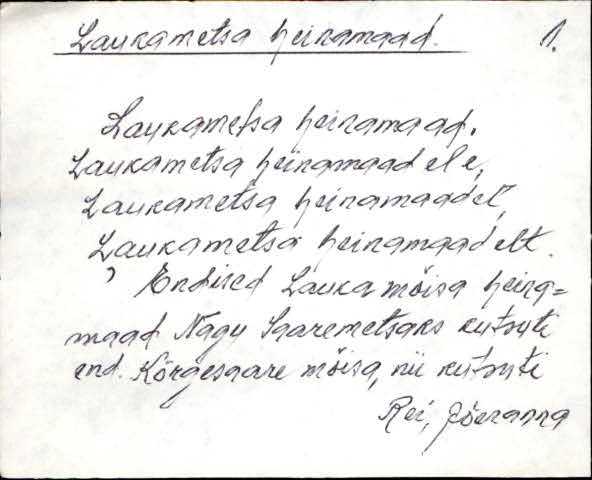 Laukametsa heinamaad. 1.
Laukametsa heinamaad,
Laukametsa heinamaadele,
Laukametsa heinamaadel,
Laukametsa heinamaadelt.
Endised Lauka mõisa heina=
maad. Nagu Saaremetsaks kutsuti
end. Kõrgesaare mõisa, nii kutsuti
Rei, Jõeranna